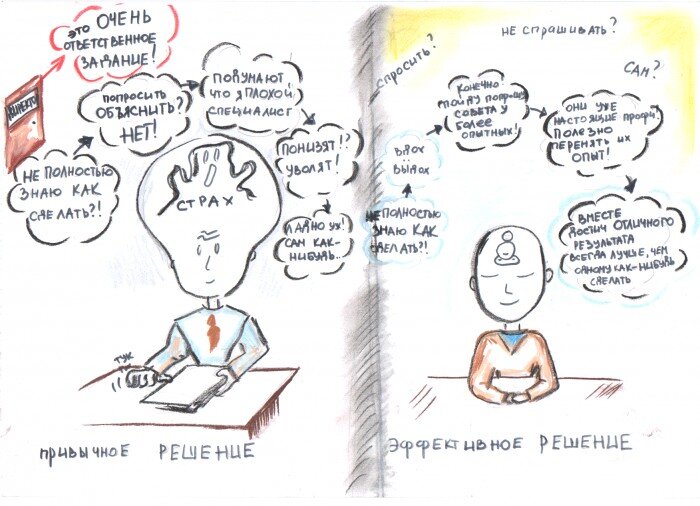 это ОЧЕНЬ
ОТВЕТСТВЕННОЕ
ЗАДАНИЕ!
НЕ ПОЛНОСТЬЮ
ЗНАЮ КАК
СДЕЛАТЬ?!
ПОПРОСИТЬ
ОБЪЯСНИТЬ?
НЕТ!
ПОДУМАЮТ,
ЧТО Я ПЛОХОЙ
СПЕЦИАЛИСТ
ПОНИЗЯТ!?
УВОЛЯТ!
ЛАДНО УЖ!
САМ КАК-
НИБУДЬ..
СТРАХ
ТУК
ПРИВЫЧНОЕ РЕШЕНИЕ
СПРОСИТЬ?
НЕ СПРАШИВАТЬ?
САМ?
НЕ ПОЛНОСТЬЮ
ЗНАЮ КАК
СДЕЛАТЬ?!
ВДОХ
ВЫДОХ
КОНЕЧНО!
ПОЙДУ ПОПРОШУ
СОВЕТА У
БОЛЕЕ
ОПЫТНЫХ!
ОНИ УЖЕ
НАСТОЯЩИЕ ПРОФИ!
ПОЛЕЗНО
ПЕРЕНЯТЬ ИХ
ОПЫТ!
ВМЕСТЕ
ДОСТИЧ ОТЛИЧНОГО
РЕЗУЛЬТАТА
ВСЕГДА ЛУЧШЕ, ЧЕМ
ОДНОМУ КАК-НИБУДЬ
СДЕЛАТЬ
ЭФФЕКТИВНОЕ РЕШЕНИЕ